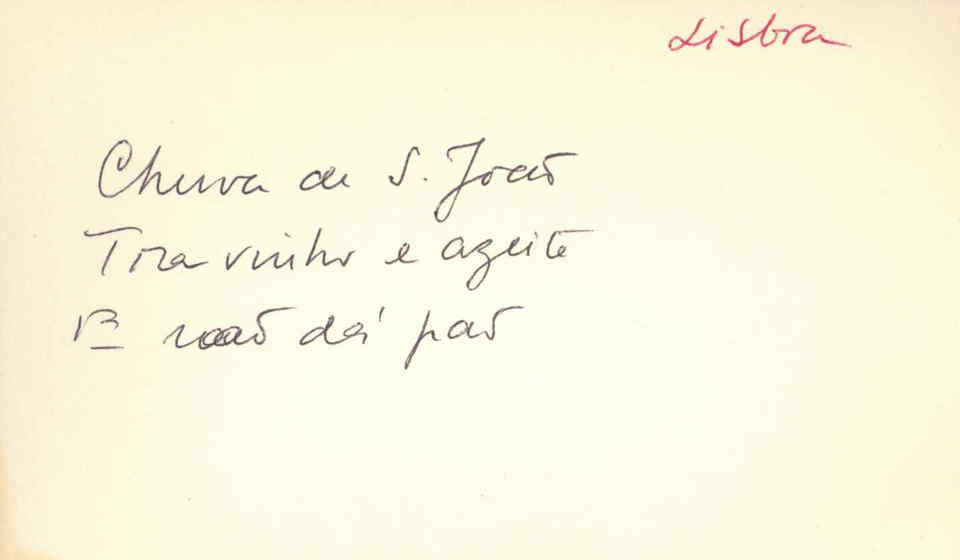 Lisboa
Chuva de S. João
Tira vinho e azeite
E não dá pão